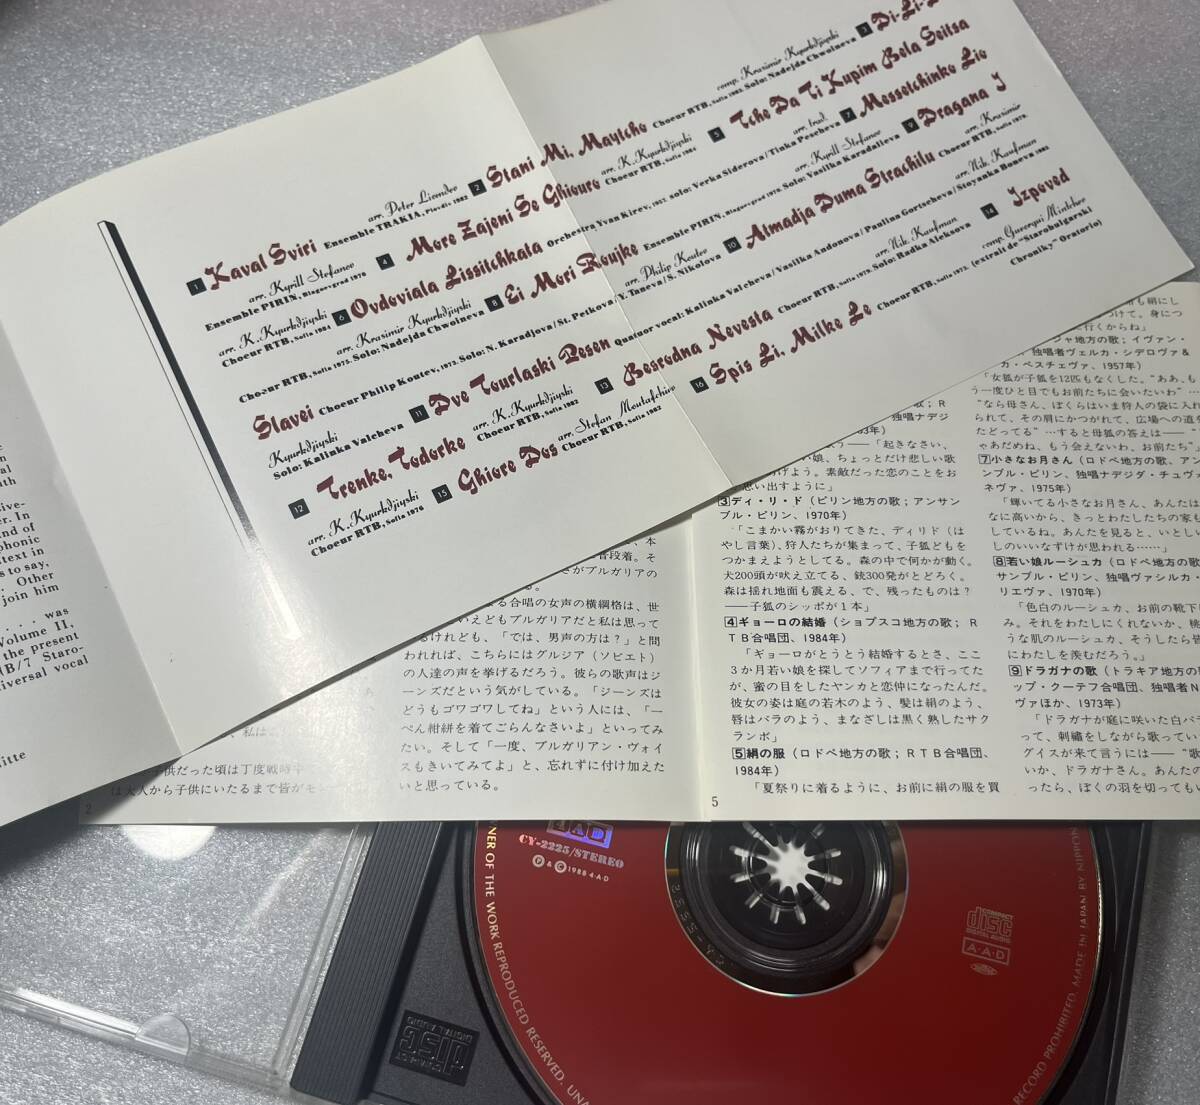 comp. Krasimir Kyurkdjiyski 3 Di-Li-
1 Kaval Sviri
arr. Peter Liondev 2 Stani Mi, Maytcho
Ensemble TRAKIA, Plovdiv 1982
Choeur RTB, Sofia 1982. Solo: Nadejda Chwoineva
arr. Kyrill Stefanov 4 More Zajeni Se Ghiouro
arr. K. Kyurkdjiyski 5 Tche Da Ti Kupim Bela Seitsa
Ensemble PIRIN, Blagoevgrad 1970
Choeur RTB, Sofia 1984
arr. K. Kyurkdjiyski 6 Ovdoviala Lissitchkata
Choeur RTB, Sofia 1984
Orchestra Yvan Kirev, 1957. solo: Verka Siderova/Tinka Pescheva
arr. trad. 7 Messetchinko Lio
arr. Krasimir Kyurkdjiyski 8 Ei Mori Roujke
Choeur RTB, Sofia 1975. Solo: Nadejda Chwoineva
Ensemble PIRIN, Blagoevgrad 1970. Solo: Vasilka Karadalieva
arr. Kyrill Stefanov 9 Dragana I
Slavei
Choeur Philip Koutev, 1973. Solo: N. Karadjova/St. Petkova/Y. Taneva/S. Nikolova
arr. Philip Koutev 10 Almadja Duma Strachilu
arr. Krasimir
Choeur RTB, Sofia 1979.
Kyurkdjiyski
Solo: Kalinka Valcheva 11 Dve Tourlaski Pesen
Quatuor vocal: Kalinka Valcheva/Vasilka Andonova/Paulina Gortscheva/Stoyanka Boneva 1985
arr. Nik. Kaufman
12 Trenke, Todorke
arr. K. Kyurkdjiyski 13 Besrodna Nevesta
Choeur RTB, Sofia 1982
Choeur RTB, Sofia 1979. Solo: Radka Aleksova
arr. Nik. Kaufman 14 Izpoved
arr. K. Kyurkdjiyski
Choeur RTB, Sofia 1976 15 Ghiore Dos
arr. Stefan Moutafchiev
Choeur RTB, Sofia 1982 16 Spis Li, Milke Le
Choeur RTB, Sofia 1972. (extrait de "Starobulgarski
comp. Gueorgui Mintchev
Chroniky" Oratorio)
er. In
nd of
phonic
text in
s to say,
Other
join him
was
Volume II,
the present
B/7 Staro-
iversal vocal
itte
供だった頃は丁度戦時中
は大人から子供にいたるまで皆がモン
2
る合唱の女声の横綱格は、世
いえどもブルガリアだと私は思って
るけれども、「では、男声の方は？」と問
われれば、こちらにはグルジア（ソビエト）
の人達の声を挙げるだろう。彼らの歌声はジ
ーンズだという気がしている。「ジーンズは
どうもゴワゴワしてね」という人には、「一
ぺん紺絣を着てごらんなさいよ」といってみ
たい。そして「一度、ブルガリアン・ヴォイ
スもきいてみてよ」と、忘れずに付け加えた
いと思っている。
「起きなさい、
い娘、ちょっとだけ悲しい歌
げよう。素敵だった恋のことをお
思い出すように」
3 ディ・リ・ド（ピリン地方の歌；アンサン
ブル・ピリン、1970年）
「こまかい霧がおりてきた、ディリド（は
やし言葉）、狩人たちが集まって、子狐どもを
つかまえようとしてる。森の中で何かが動く。
犬200頭が吠え立てる、銃300発がとどろく。
森は揺れ地面も震える、で、残ったものは？
——子狐のシッポが１本」
4 ギョーロの結婚（ショプスコ地方の歌；Ｒ
ＴＢ合唱団、1984年）
「ギョーロがとうとう結婚するとさ、ここ
３か月若い娘を探してソフィアまで行ってた
が、蜜の目をしたヤンカと恋仲になったんだ。
彼女の姿は庭の若木のよう、髪は絹のよう、
唇はバラのよう、まなざしは黒く熟したサク
ランボ」
5 絹の服（ロドペ地方の歌；ＲＴＢ合唱団、
1984年）
「夏祭りに着るように、お前に絹の服を買
5
も絹にし
つけて。身につ
に行くからね」
ジャ地方の歌；イヴァン・
独唱者ヴェルカ・シデロヴァ＆
カ・ペスチェヴァ、1957年）
「女狐が子狐を12匹もなくした。“ああ、も
う一度ひと目でもお前たちに会いたいわ”…
“なら母さん、ぼくらはいま狩人の袋に入れ
られて、その肩にかつがれて、広場への道を
たどってる”…すると母狐の答えは——“
ゃあだめね、もう会えないわ、お前たち”」
7 小さなお月さん（ロドペ地方の歌、アン
ンブル・ピリン、独唱ナデジダ・チュヴ
ネヴァ、1975年）
「輝いてる小さなお月さん、あんたは
なに高いから、きっとわたしたちの家も
しているね。あんたを見ると、いとしい
しのいいなずけが思われる……」
8 若い娘ルーシュカ（ロドペ地方の歌
サンブル・ピリン、独唱ヴァシルカ・
リエヴァ、1970年）
「色白のルーシュカ、お前の靴下
み。それをわたしにくれないか、桃
うな肌のルーシュカ、そうしたら皆
にわたしを羨むだろう。」
9 ドラガナの歌（トラキア地方の
ップ・クーテフ合唱団、独唱者Ｎ
ヴァほか、1973年）
「ドラガナが庭に咲いた白バ
って、刺繍をしながら歌ってい
グイスが来て言うには——“歌
いか、ドラガナさん。あんたの
ったら、ぼくの羽を切ってもい
AAD
CY-2225/STEREO
Ⓟ & © 1988 4·A·D
COMPACT
disc
DIGITAL AUDIO
A·A·D
NER OF THE WORK REPRODUCED RESERVED. UNA
RECORD PROHIBITED. MADE IN JAPAN BY NIPPON
COMPACT
disc
DIGITAL AUDIO